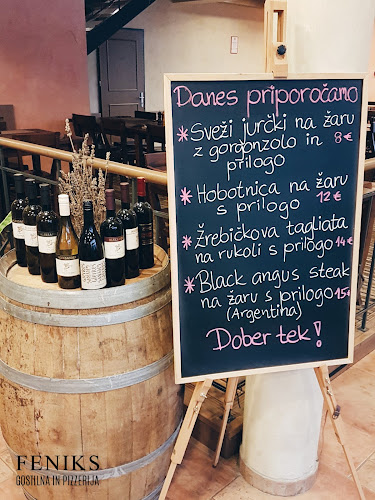 Danes priporočamo
* Sveži jurčki na žaru
z gorgonzolo in 8€
prilogo
* Hobotnica na žaru
s prilogo 12€
* Žrebičkova tagliata
na rukoli s prilogo 14€
* Black angus steak
na žaru s prilogo 15€
(Argentina)
Dober tek!
FENIKS
GOSTILNA IN PIZZERIJA